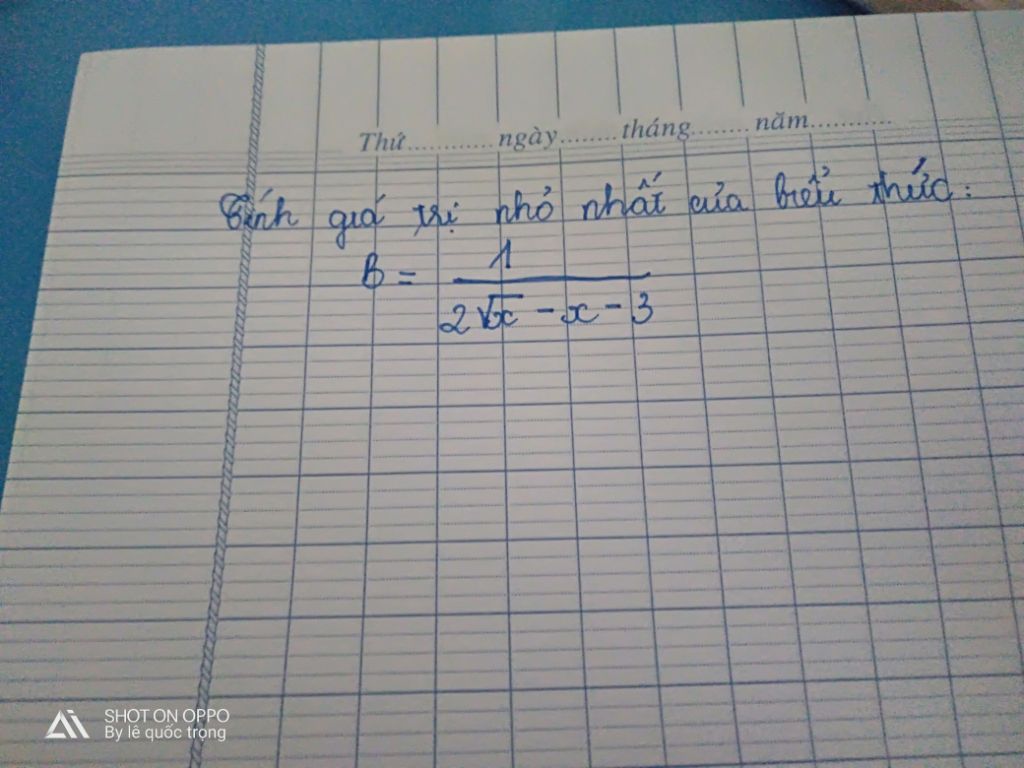 Thứ............ngày........tháng........năm............
Tính giá trị nhỏ nhất của biểu thức:
B = 1 / (2√x - x - 3)
SHOT ON OPPO
By lê quốc trọng